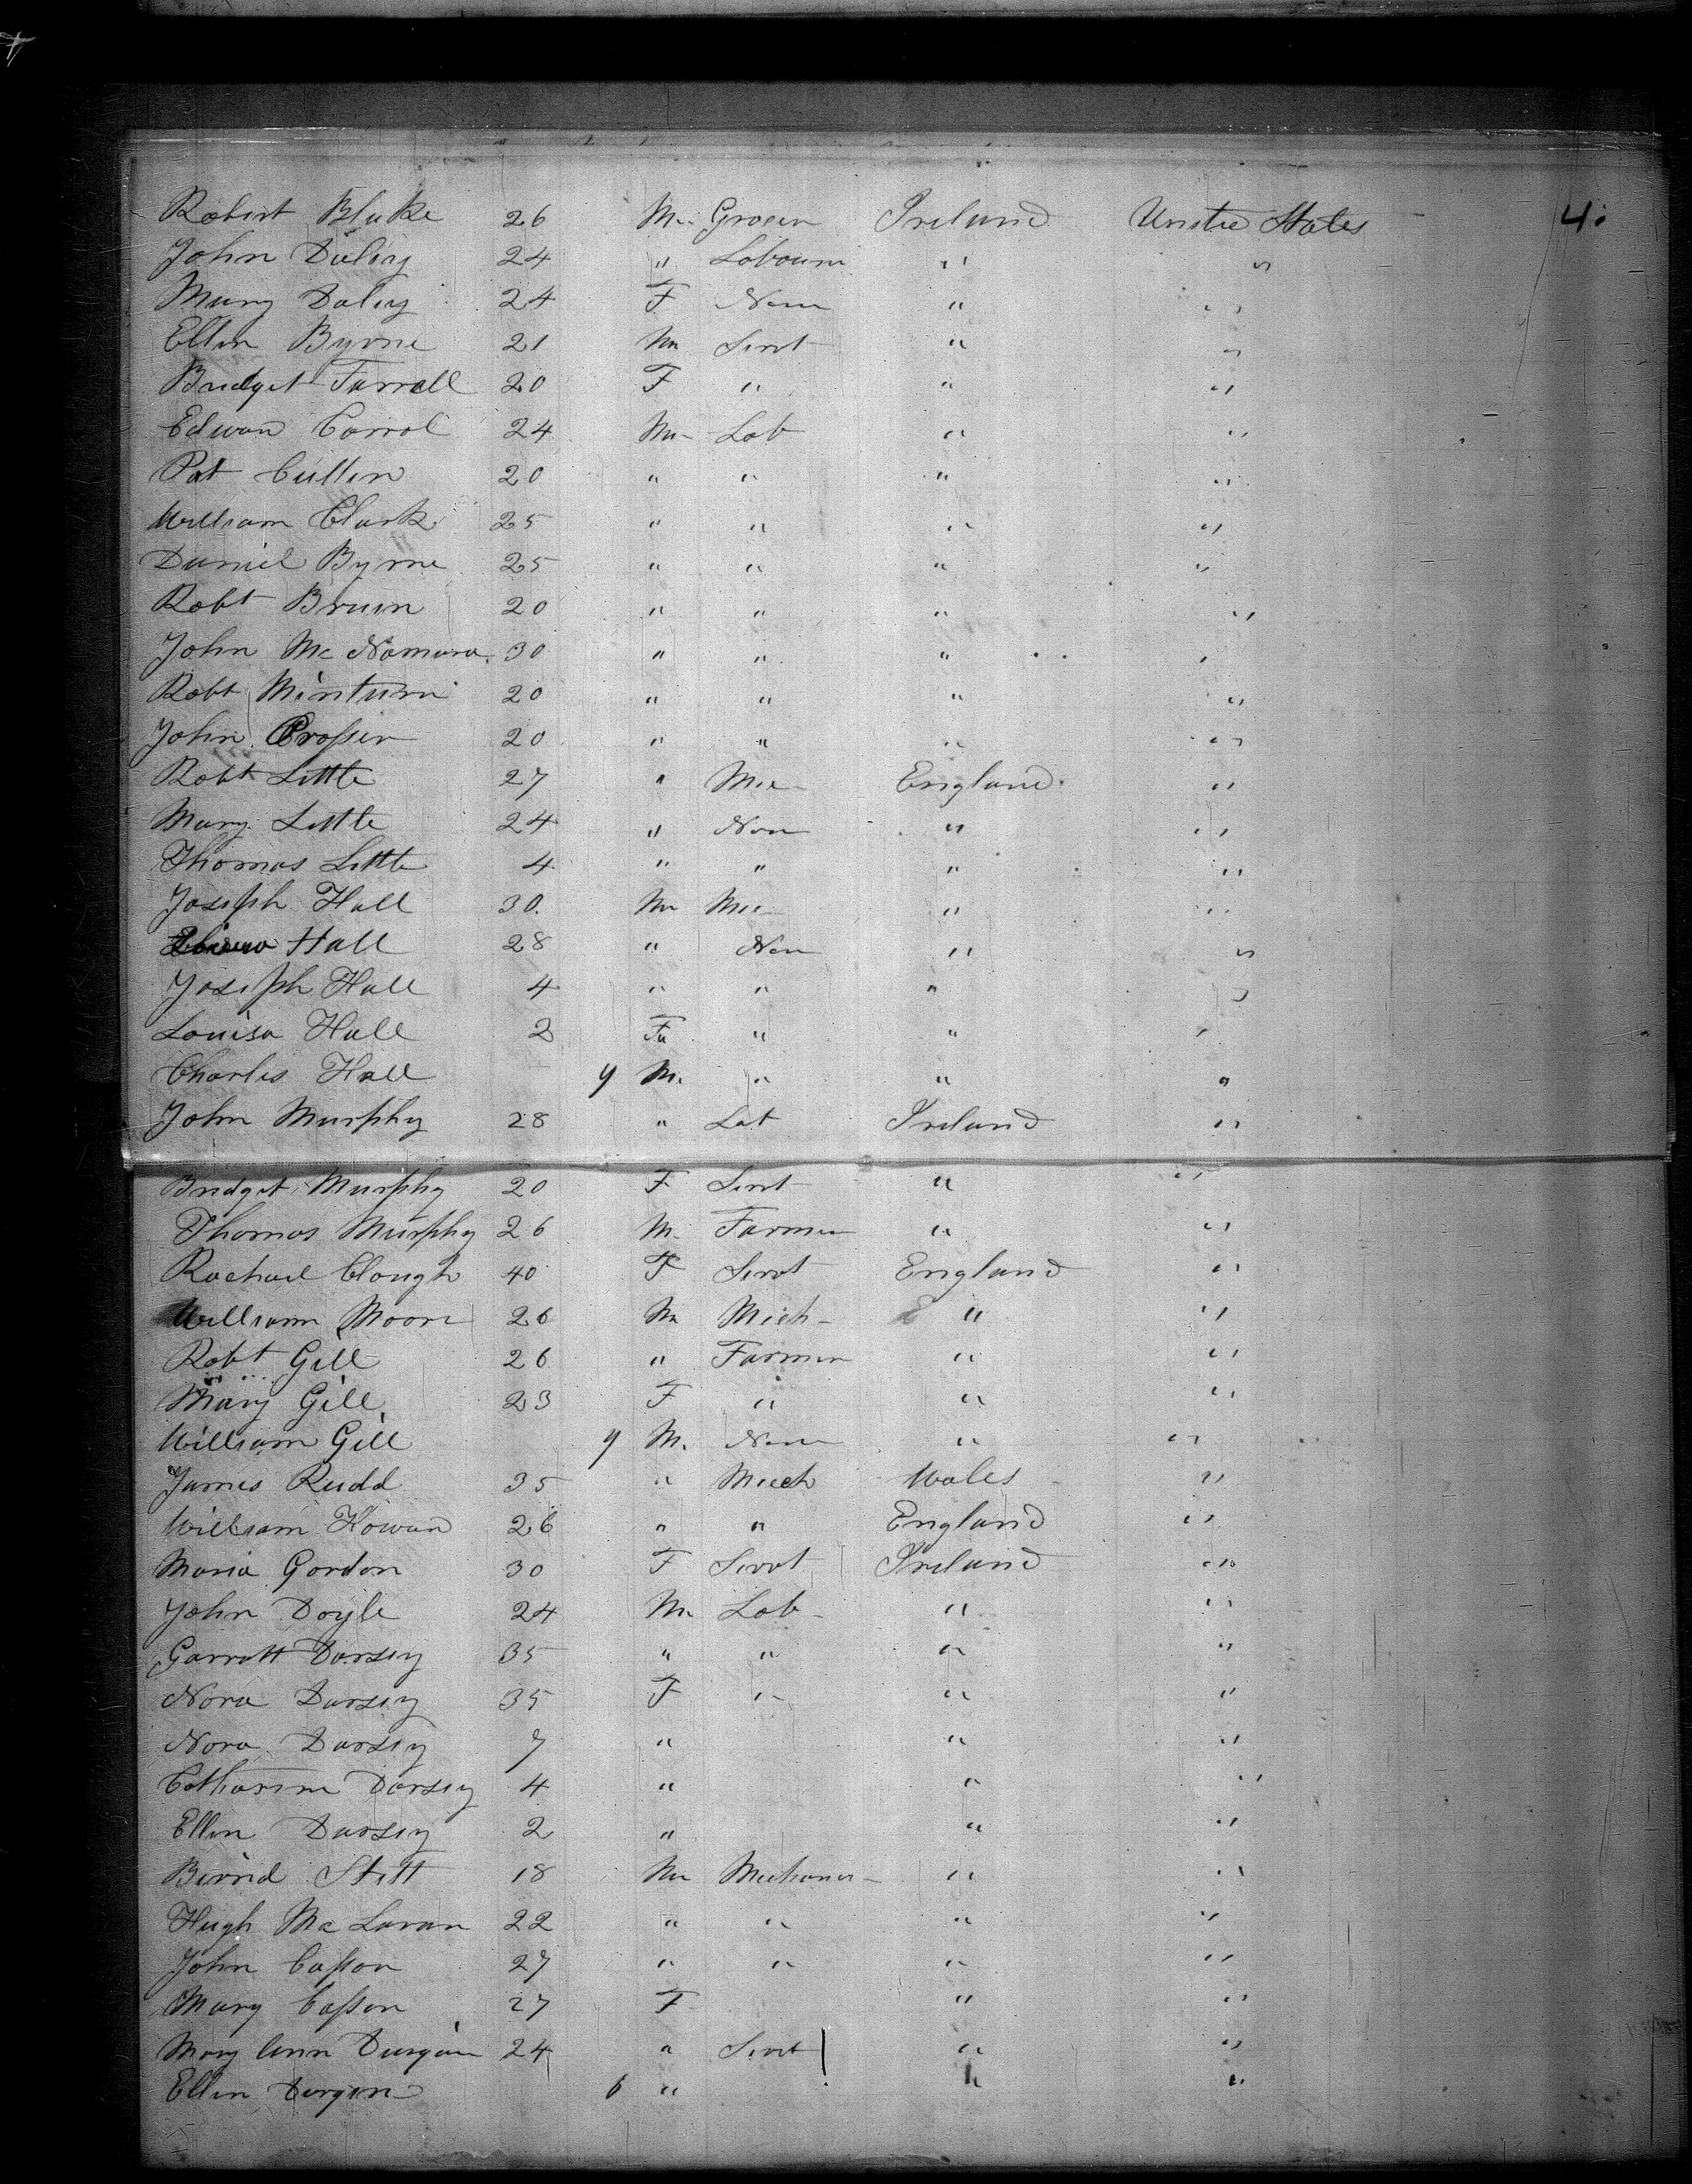 Robert Blake 26 M. Grocer Ireland United States 4.
John Daley 24 " Labourer " "
Mary Daley 24 F None " "
Ellen Byrne 21 M Servt " "
Bridget Farrell 20 F " " "
Edward Carrol 24 M Lab " "
Pat Cullen 20 " " " "
William Clark 25 " " " "
Daniel Byrne 25 " " " "
Robt Bruen 20 " " " "
John McNamara 30 " " " "
Robt Minturn 20 " " " "
John Crosser 20 " " " "
Robt Little 27 " Mec England "
Mary Little 24 " Non " "
Thomas Little 4 " " " "
Joseph Hall 30. M Mec " "
Hall 28 " Non " "
Joseph Hall 4 " " " "
Louisa Hall 2 Fa " " "
Charles Hall 9 M. " " "
John Murphy 28 " Lab Ireland "
Bridget Murphy 20 F Servt " "
Thomas Murphy 26 M. Farmer " "
Rachael Clough 40 F Servt England "
William Moore 26 M Mech " "
Robt Gill 26 " Farmer " "
Mary Gill 23 F " " "
William Gill 9 M. None " "
James Rudd 35 " Mech Wales "
William Kowan 26 " " England "
Maria Gordon 30 F Servt Ireland "
John Doyle 24 M Lab " "
Garrott Dorsey 35 " " " "
Nora Dorsey 35 F " " "
Nora Dorsey 7 " " "
Catharine Dorsey 4 " " "
Ellen Dorsey 2 " " "
Stitt 18 M Mechanic " "
Hugh McLaran 22 " " " "
John Casson 27 " " " "
Mary Casson 27 F " "
Mary Ann Durgan 24 " Servt " "
Ellen Durgin 6 " " "